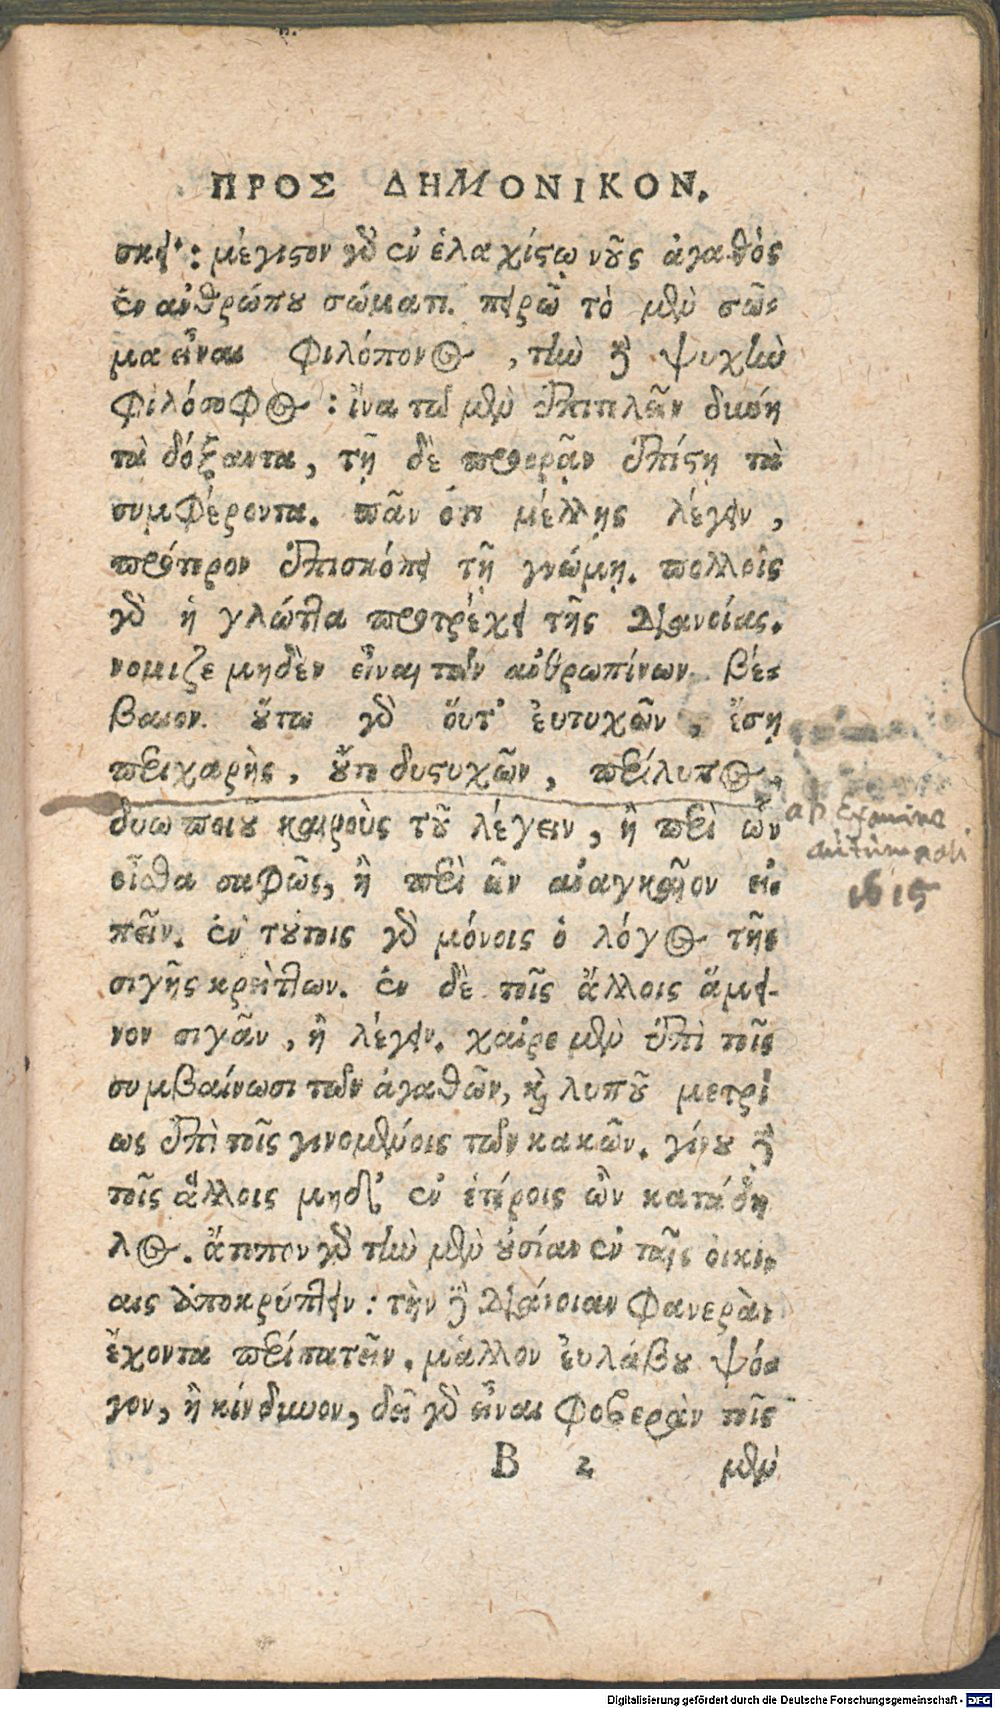 ΠΡΟΣ ΔΗΜΟΝΙΚΟΝ.
σκει: μέγιστον γὸ ἐν ἐλαχίστῳ νοῦς ἀγαθὸς
ἐν ἀνθρώπου σώματι. πειρῶ τὸ μὲν σῶ-
μα εἶναι φιλόπονος, τὴν δὲ ψυχὴν
φιλόσοφος: ἵνα τῷ μὲν ἐπιτελεῖν δύνῃ
τὰ δόξαντα, τῇ δὲ προορᾷν ἐπίστῃ τὰ
συμφέροντα. πᾶν ὅτι μέλλῃς λέγειν,
πρότερον ἐπισκόπει τῇ γνώμῃ. πολλοῖς
γὸ ἡ γλώττα προτρέχει τῆς διανοίας.
νομιζε μηδὲν εἶναι τῶν ἀνθρωπίνων βέ-
βαιον. οὕτω γὸ οὔτ' εὐτυχῶν, ἔσῃ
περιχαρὴς, οὔτε δυστυχῶν, περίλυπος,
δυω ποιοῦ καιροὺς τοῦ λέγειν, ἢ περὶ ὧν
οἶσθα σαφῶς, ἢ περὶ ὧν ἀναγκαῖον εἰ-
πεῖν. ἐν τούτοις γὸ μόνοις ὁ λόγος τῆς
σιγῆς κρείττων. ἐν δὲ τοῖς ἄλλοις ἄμει-
νον σιγᾶν, ἢ λέγειν. χαῖρε μὲν ἐπὶ τοῖς
συμβαίνωσι τῶν ἀγαθῶν, καὶ λυποῦ μετρί
ως ἐπὶ τοῖς γινομένοις τῶν κακῶν. γίνου δὲ
τοῖς ἄλλοις μηδ' ἐν ἑτέροις ὢν κατάδη
λος. ἄτοπον γὸ τὴν μὲν οὐσίαν ἐν ταῖς οἰκί-
αις ἀποκρύπτειν: τὴν δὲ διάνοιαν φανερὰν
ἔχοντα περιπατεῖν. μάλλον εὐλάβου ψό-
γον, ἢ κίνδυνον, δεῖ γὸ εἶναι φοβερὰν τοῖς
Β 2 μὲν
ab Examine
autumnali
Digitalisierung gefördert durch die Deutsche Forschungsgemeinschaft - DFG